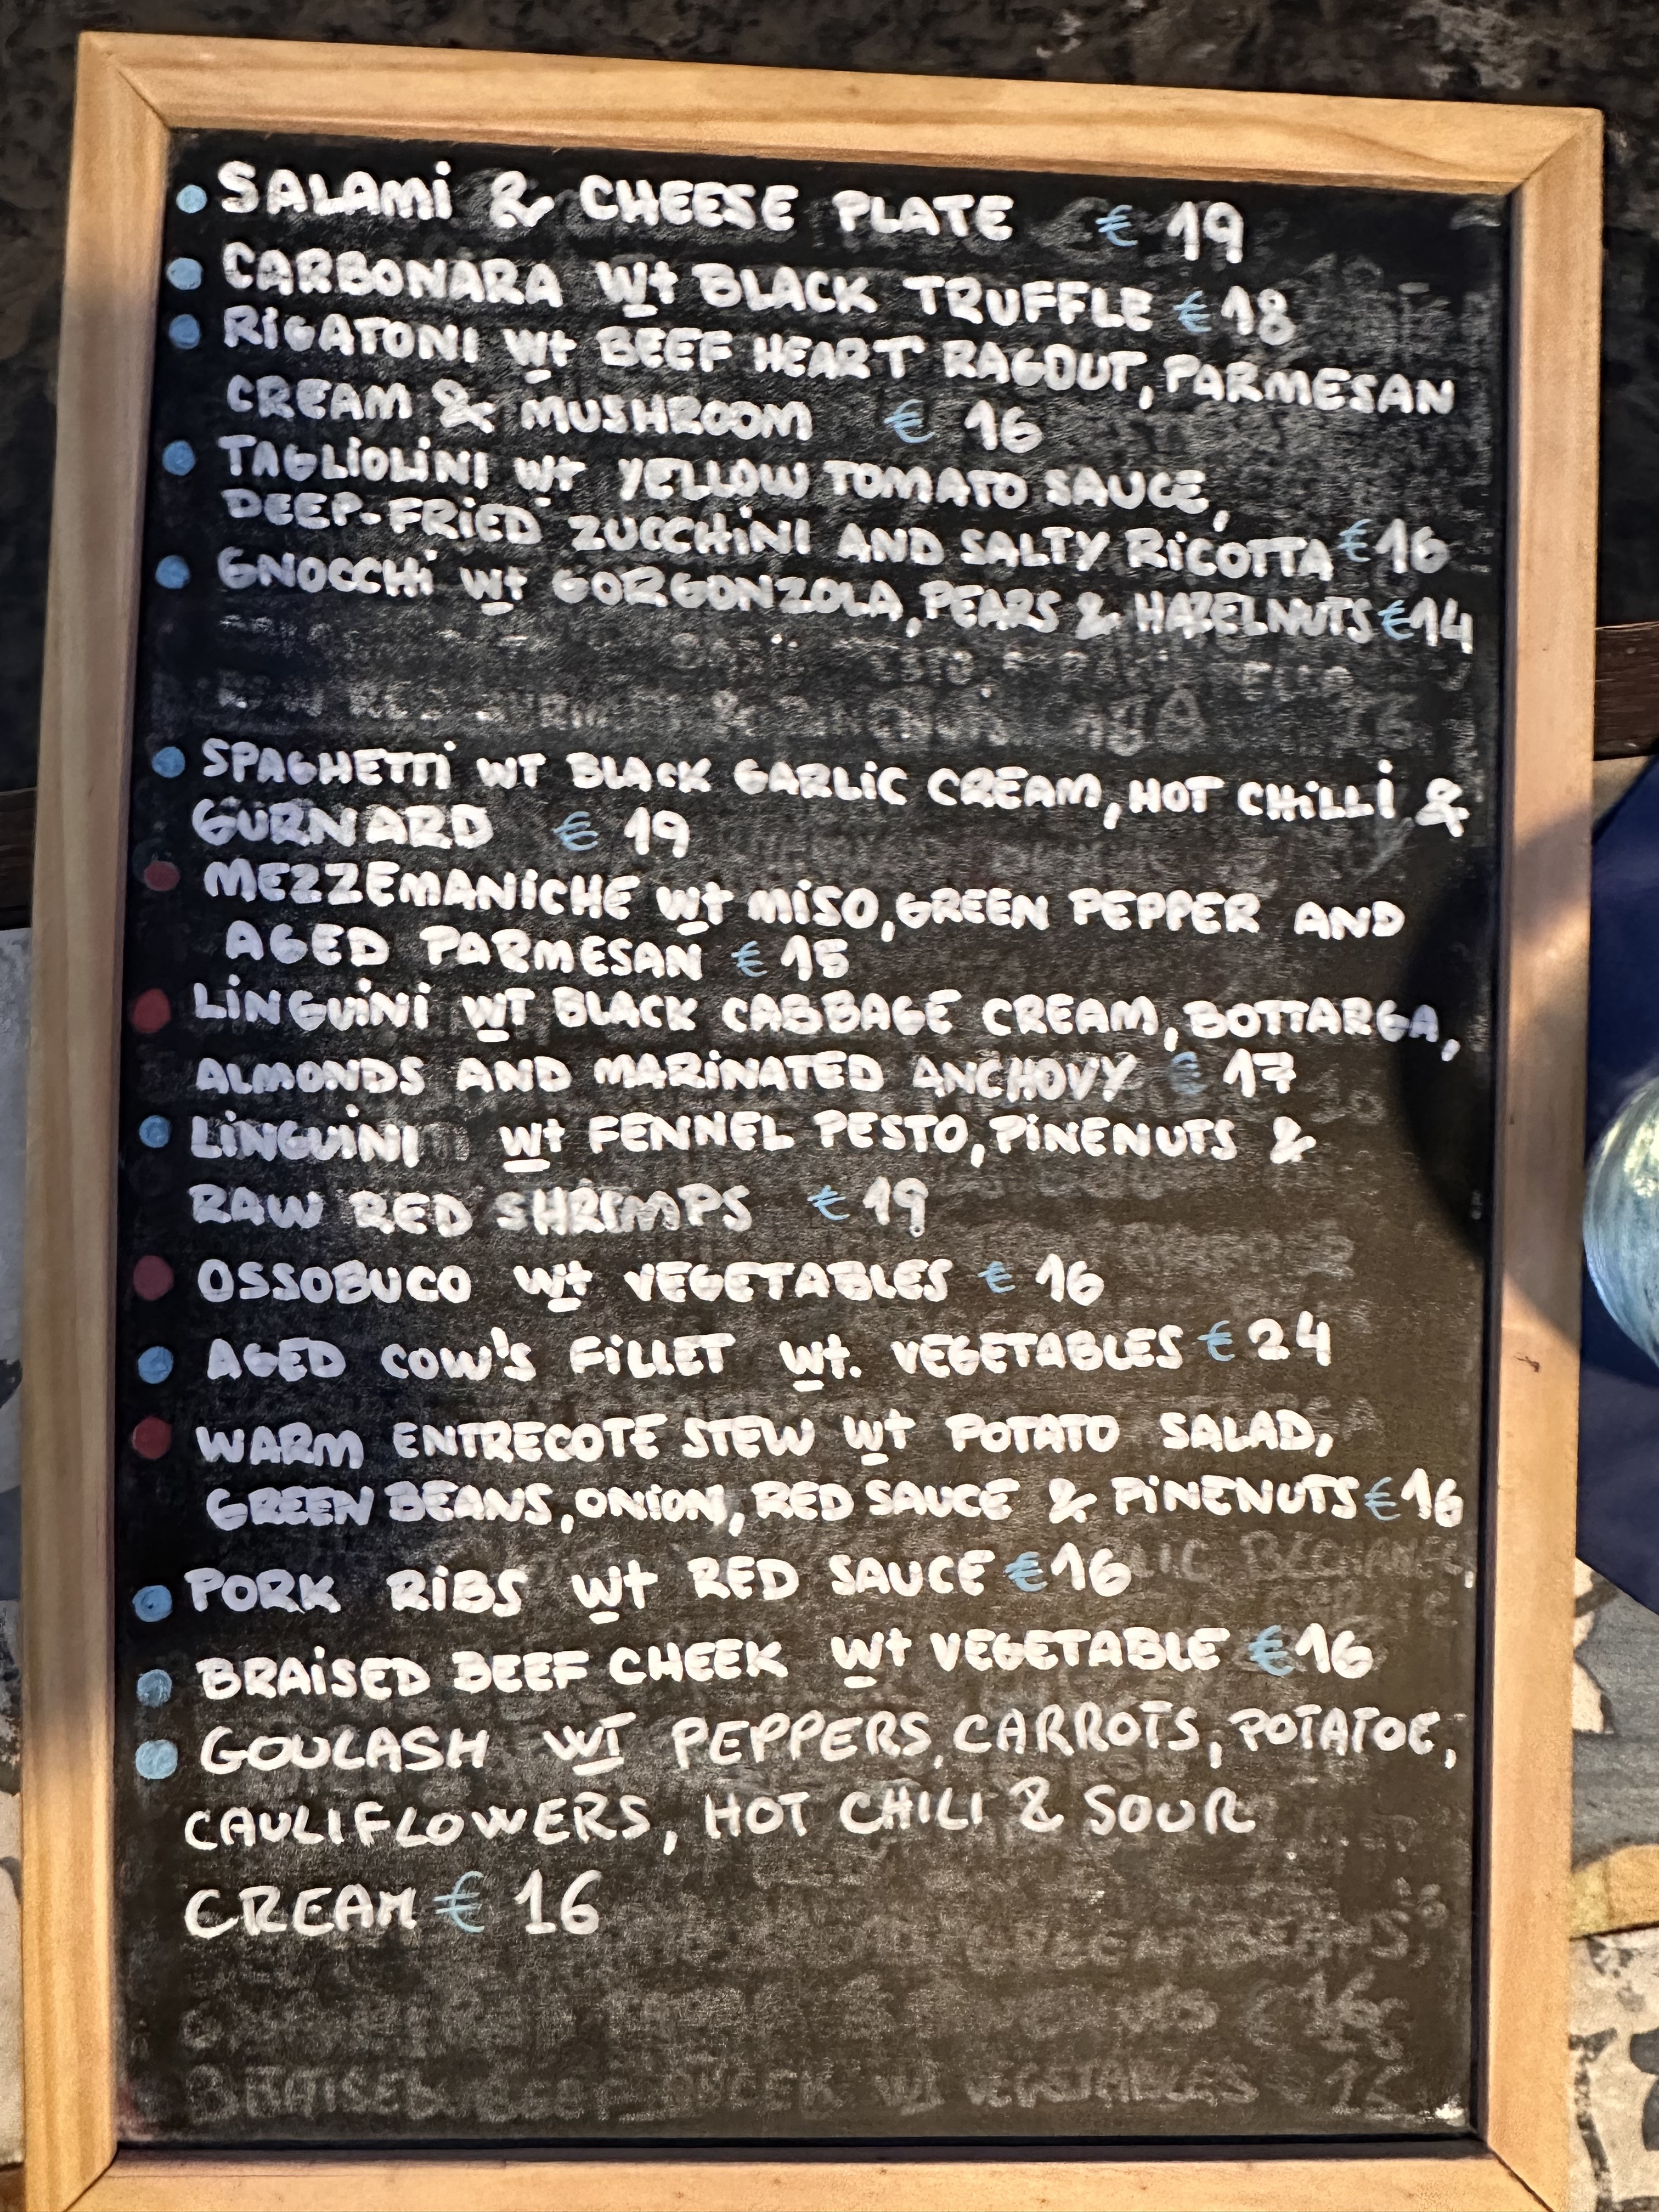 SALAMi & CHEESE PLATE € 19
CARBONARA Wt BLACK TRUFFLE € 18
RIGATONI Wt BEEF HEART RAGOUT, PARMESAN
CREAM & MUSHROOM € 16
TAGLIOLINI Wt YELLOW TOMATO SAUCE,
DEEP-FRIED ZUCCHINI AND SALTY RICOTTA € 16
GNOCCHI Wt GORGONZOLA, PEARS & HAZELNUTS € 14
SPAGHETTI WT BLACK GARLIC CREAM, HOT CHILLI &
GURNARD € 19
MEZZEMANICHE Wt MISO, GREEN PEPPER AND
AGED PARMESAN € 15
LINGUINI WT BLACK CABBAGE CREAM, BOTTARGA,
ALMONDS AND MARINATED ANCHOVY € 17
LINGUINI Wt FENNEL PESTO, PINENUTS &
RAW RED SHRIMPS € 19
OSSOBUCO Wt VEGETABLES € 16
AGED COW'S FILLET Wt. VEGETABLES € 24
WARM ENTRECOTE STEW Wt POTATO SALAD,
GREEN BEANS, ONION, RED SAUCE & PINENUTS € 16
PORK RIBS Wt RED SAUCE € 16
BRAISED BEEF CHEEK Wt VEGETABLE € 16
GOULASH WT PEPPERS, CARROTS, POTATOE,
CAULIFLOWERS, HOT CHILI & SOUR
CREAM € 16